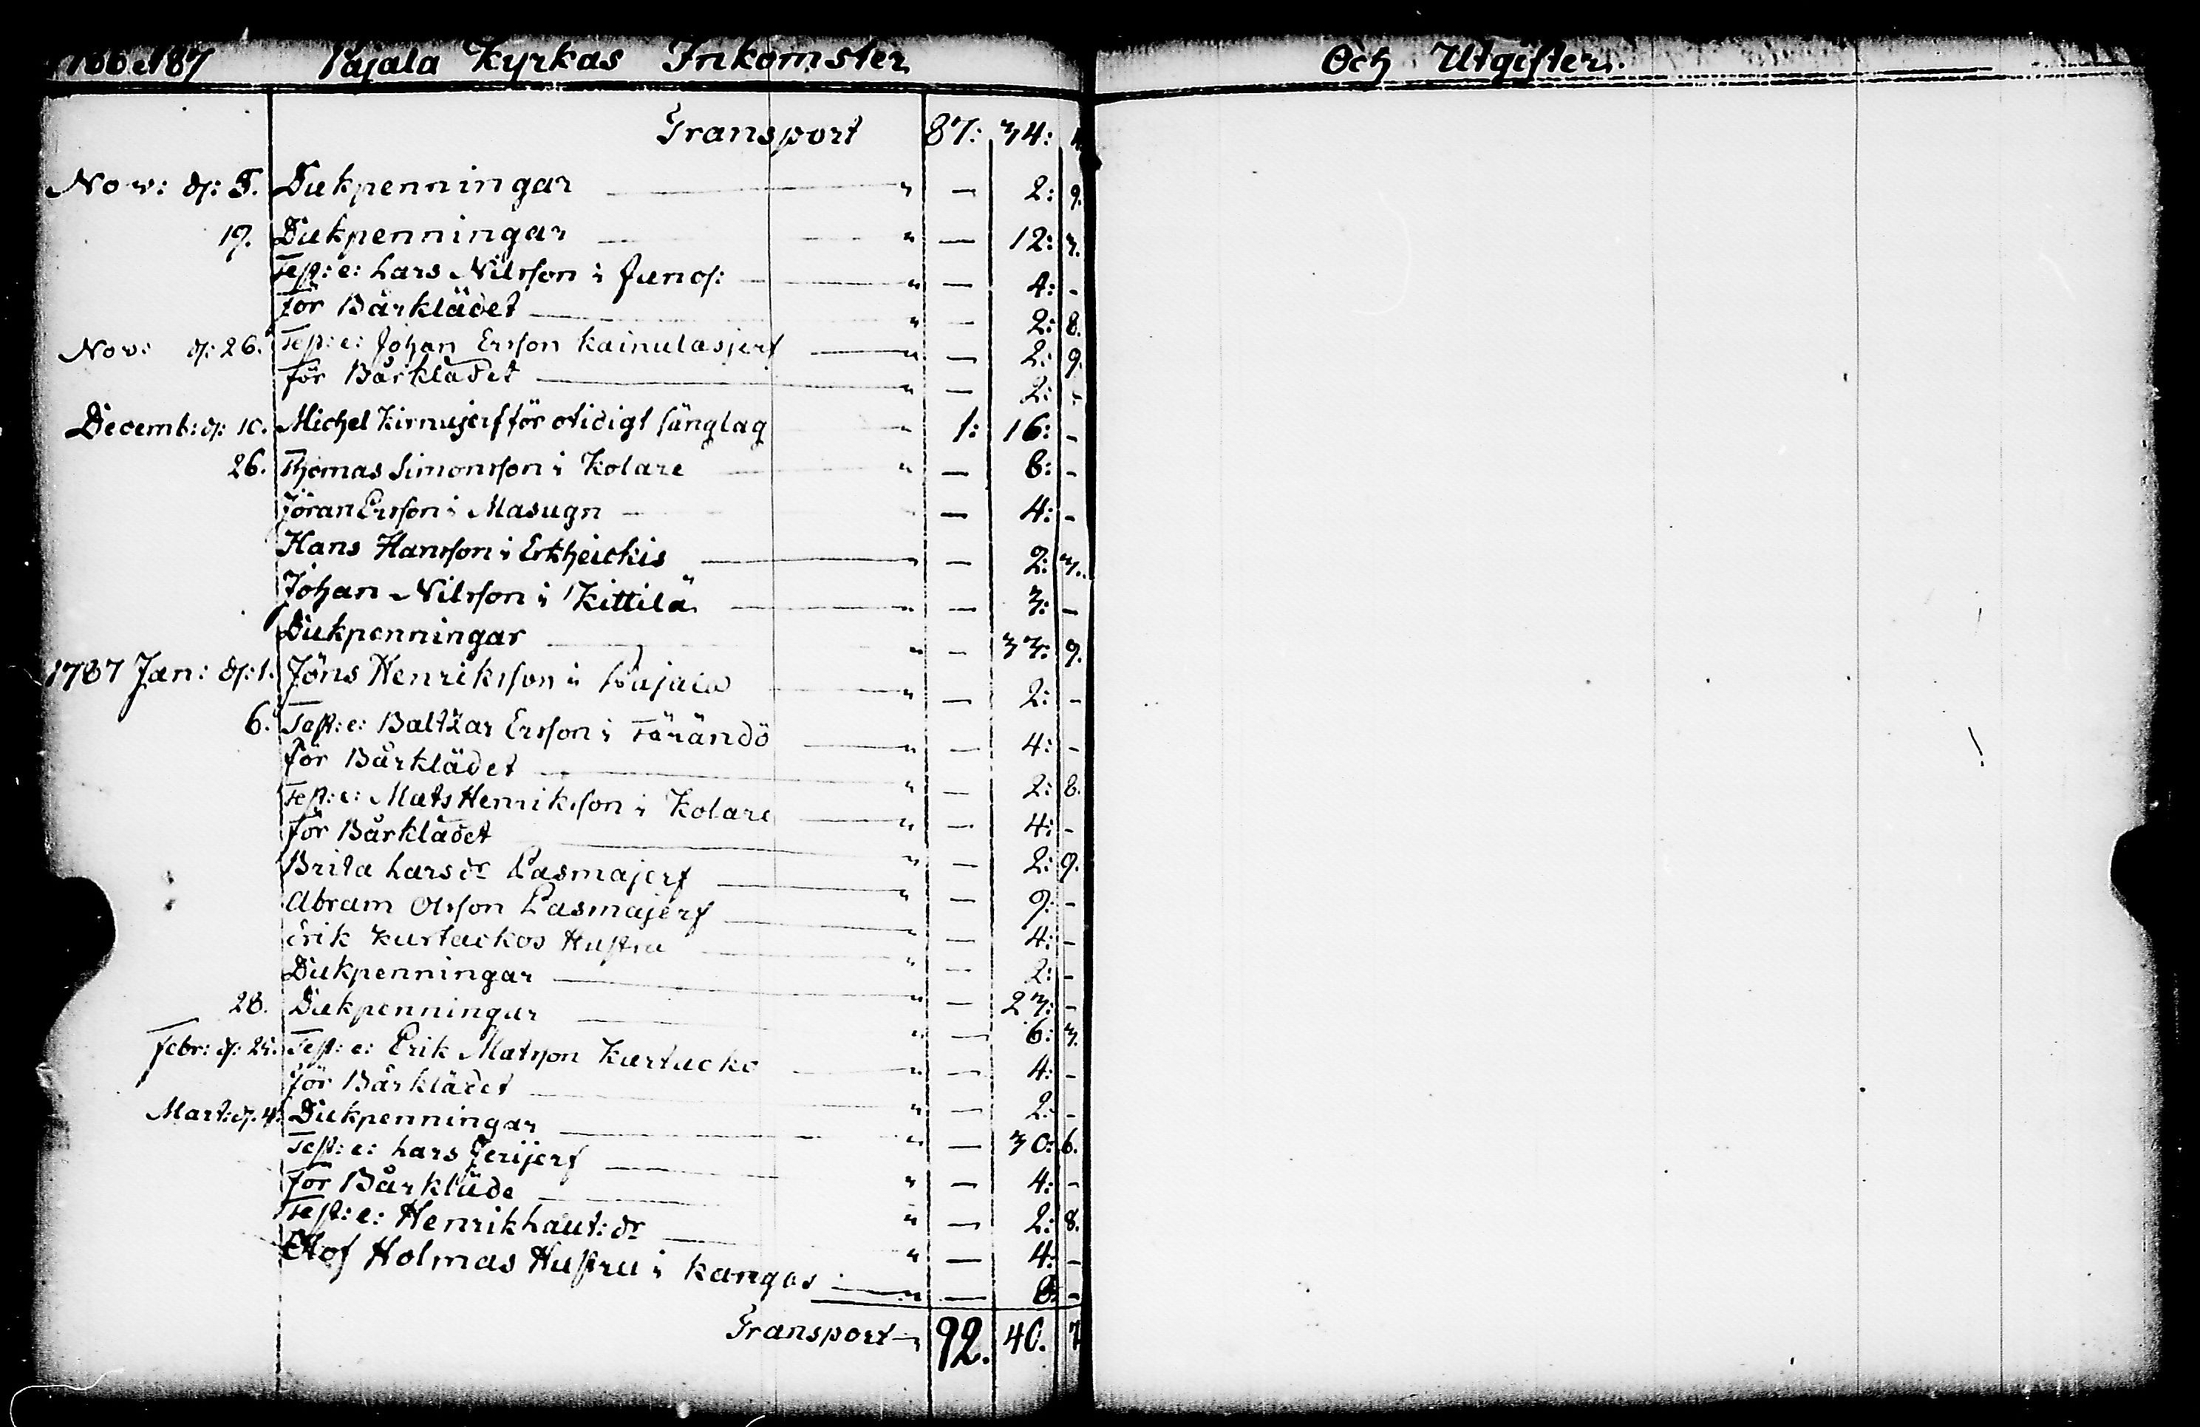 Pajala Kyrkas Inkomster
Och Utgifter.
Transport 87: 34:
Nov: d: 5. Dukpenningar " — 2: 9.
19. Dukpenningar " — 12: 3.
Test: e: Lars Nilsson i Junos: " — 4: -
för Bårklädet " — 2: 8.
Nov: d: 26. Test: e: Johan Ersson Kainulasjerf " — 2: 9.
för Bårklädet " — 2: -
Decemb: d: 10. Michel Kirnujerf för otidigt sänglag " 1: 16: -
26. Thomas Simonsson i Kolare " — 8: -
Jöran Ersson i Masugn — 4: -
Hans Hansson i Erkheickis " — 2: 3.
Johan Nilsson i Kittilä " — 3: -
Dukpenningar " — 33: 9.
1787 Jan: d: 1. Jöns Henriksson i Pajala " — 2: -
6. Test: e: Baltzar Ersson i Tärändö " — 4: -
för Bårklädet " — 2: 8.
Test: e: Mats Henriksson i Kolare " — 4: -
för Bårklädet " — 2: 9.
Brita Larsdr Pasmajerf " — 9: -
Abram Olsson Pasmajerf " — 4: -
Erik Kurtackos Hustru " — 2: -
Dukpenningar " — 23: -
28. Dukpenningar " — 6: 3.
Febr: d: 25. Test: e: Erik Matsson Kurtacko " — 4: -
för Bårklädet " — 2: -
Mart: d. 4. Dukpenningar " — 30: 6.
Test: e: Lars Jerijerf " — 4: -
för Bårkläde " — 2: 8.
Test: e: Henrik Laut: dr " — 4: -
Olof Holmas Hustru i Kangas " — 8: -
Transport 92. 40. 7